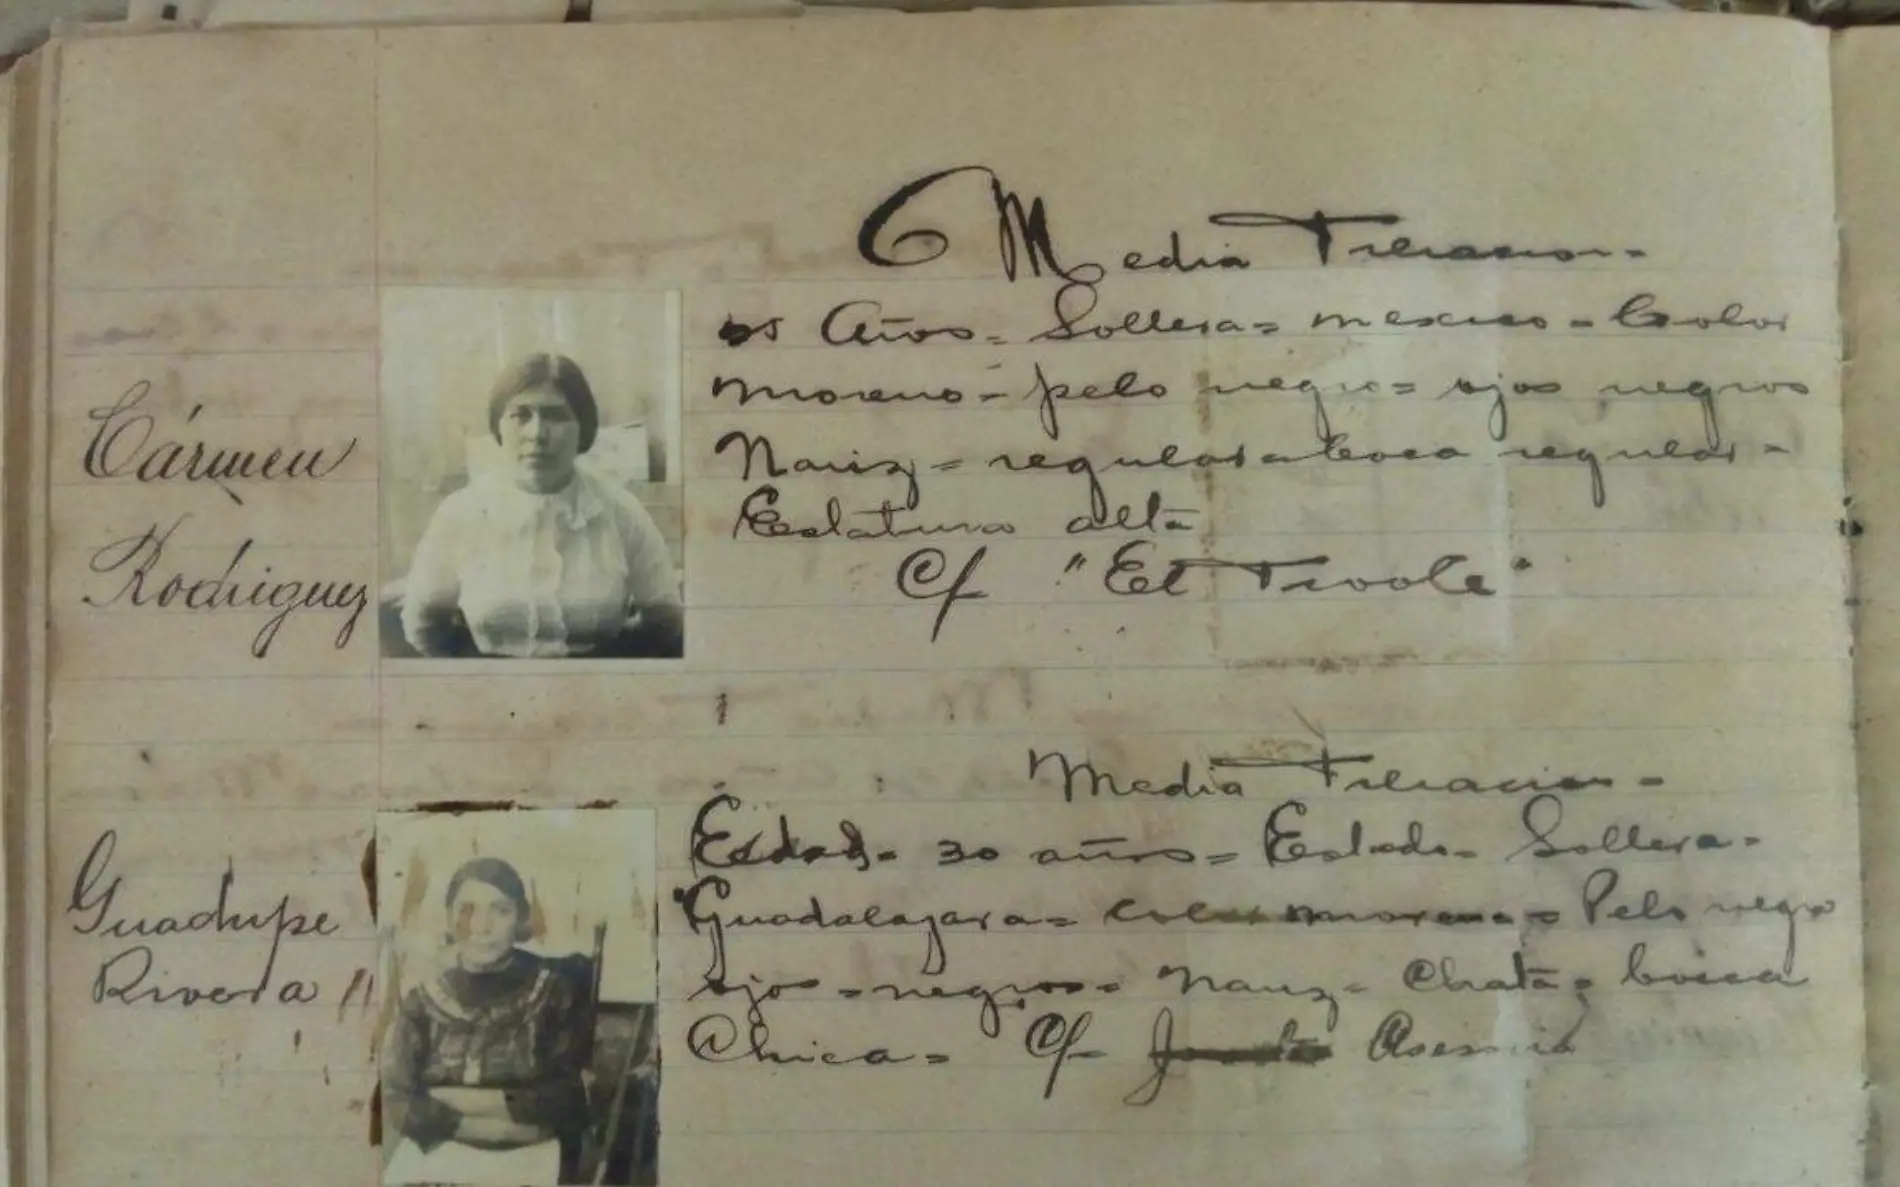 Cármen
Rodriguez
Media Filiacion -
Años = Soltera = mexico - Color
moreno - pelo negro = ojos negros
Nariz = regular = boca regular -
Estatura alta
C/ "El Tivole"
Guadupe
Rivera
Media Filiacion -
Edad - 30 años = Estado - Soltera -
Guadalajara = color morena = Pelo negro
ojos = negros = Nariz - Chata = boca
Chica = C/